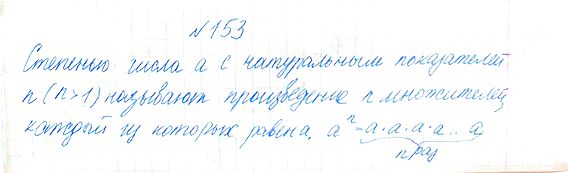 №153
Степенью числа a с натуральным показателей
n (n>1) называют произведение n множителей,
каждый из которых равена. aⁿ = a·a·a·a..a
n раз